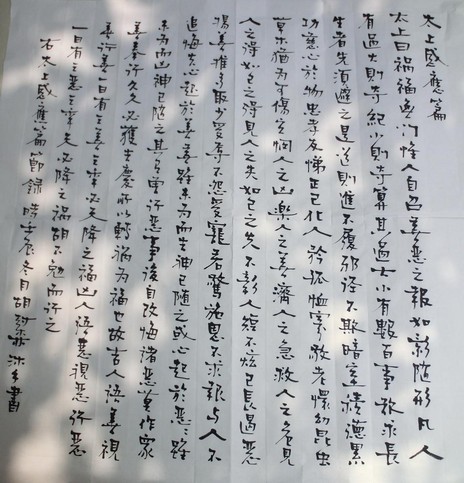 太上感應篇
太上曰禍福無門惟人自召善惡之報如影随形凡人
有過大則奪紀小則奪算其過大小有數百事欲求長
生者先須避之是道則進不履邪徑不欺暗室積德累
功慈心於物忠孝友悌正己化人矜孤恤寡敬老懷幼昆虫
草木猶不可傷宜憫人之凶樂人之善濟人之急救人之危見
人之得如己之得見人之失如己之失不彰人短不炫己長遏惡
揚善推多取少受辱不怨受寵若驚施恩不求報与人不
追悔夫心起於善善雖未為而吉神已随之或心起於惡惡雖
未為而凶神已随之其有曾行惡事後自改悔諸惡莫作衆
善奉行久久必獲吉慶所以轉禍為福也故吉人語善視
善行善一日有三善三年天必降之福凶人語惡視惡行惡
一日有三惡三年天必降之禍胡不勉而行之
右太上感應篇節録 時壬辰冬月胡 沐手書